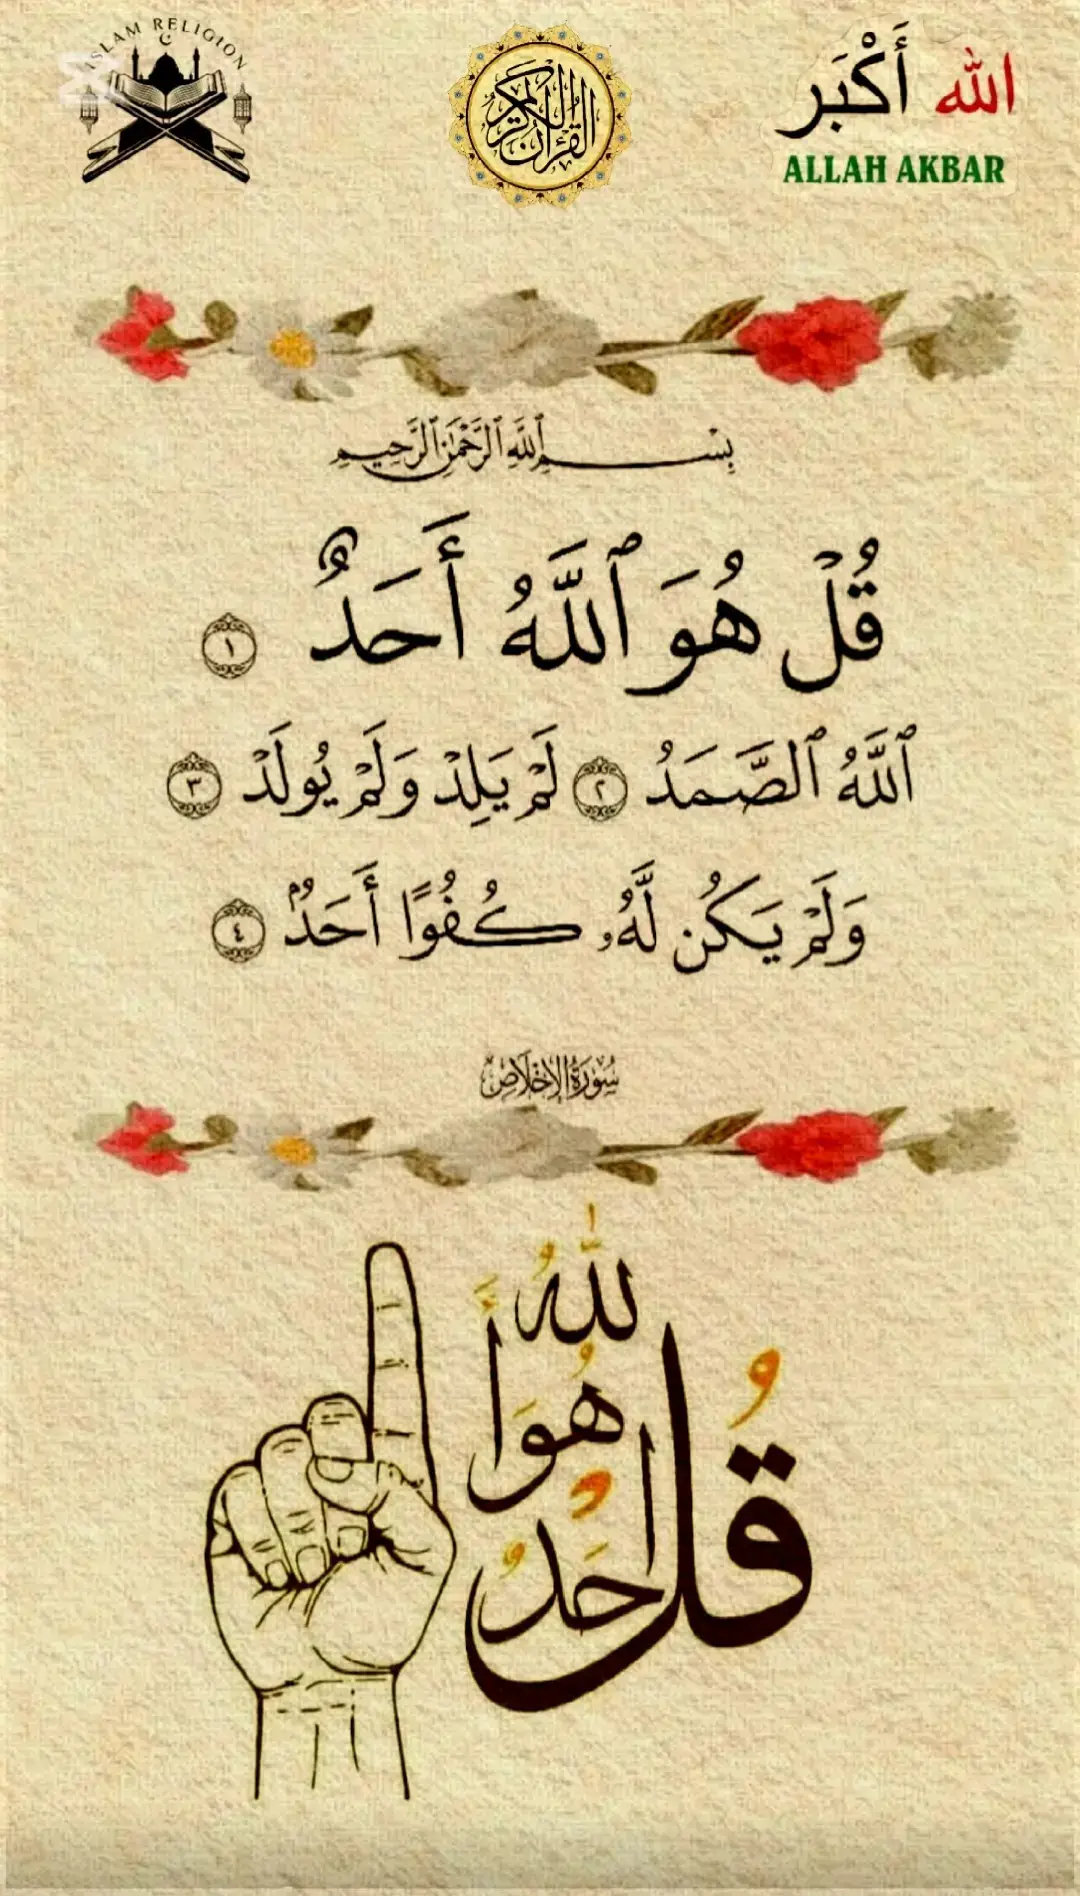 ISLAM RELIGION
القرآن الكريم
الله أَكْبَر
ALLAH AKBAR
بِسْمِ ٱللَّهِ ٱلرَّحْمَٰنِ ٱلرَّحِيمِ
قُلْ هُوَ ٱللَّهُ أَحَدٌ ١
ٱللَّهُ ٱلصَّمَدُ ٢ لَمْ يَلِدْ وَلَمْ يُولَدْ ٣
وَلَمْ يَكُن لَّهُۥ كُفُوًا أَحَدٌۢ ٤
سُورَةُ الإِخْلَاصِ
قُلْ هُوَ اللهُ أَحَدٌ